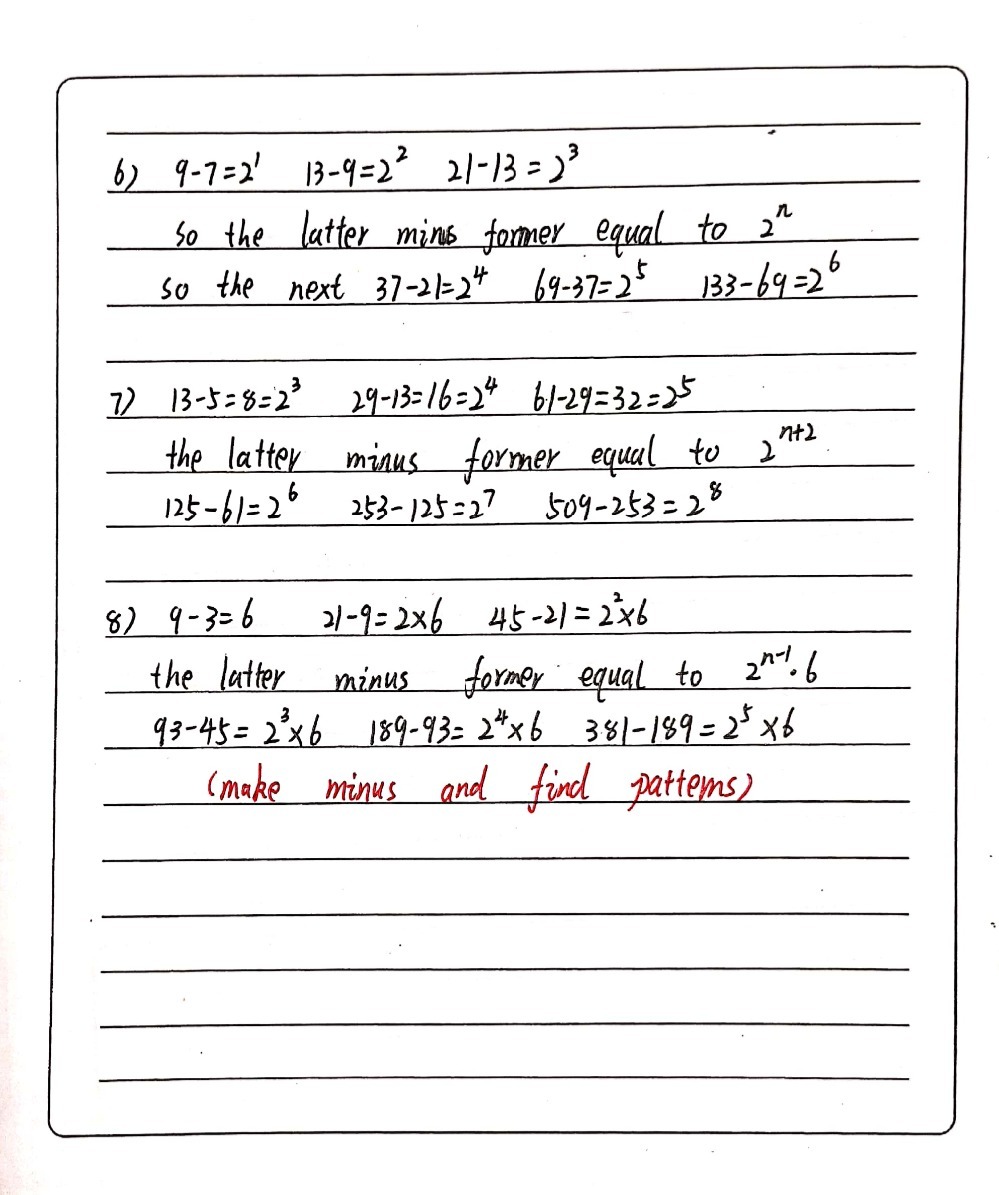 6) 9-7=2¹ 13-9=2² 21-13=2³
so the latter minus former equal to 2ⁿ
so the next 37-21=2⁴ 69-37=2⁵ 133-69=2⁶
7) 13-5=8=2³ 29-13=16=2⁴ 61-29=32=2⁵
the latter minus former equal to 2ⁿ⁺²
125-61=2⁶ 253-125=2⁷ 509-253=2⁸
8) 9-3=6 21-9=2×6 45-21=2²×6
the latter minus former equal to 2ⁿ⁻¹·6
93-45=2³×6 189-93=2⁴×6 381-189=2⁵×6
(make minus and find patterns)